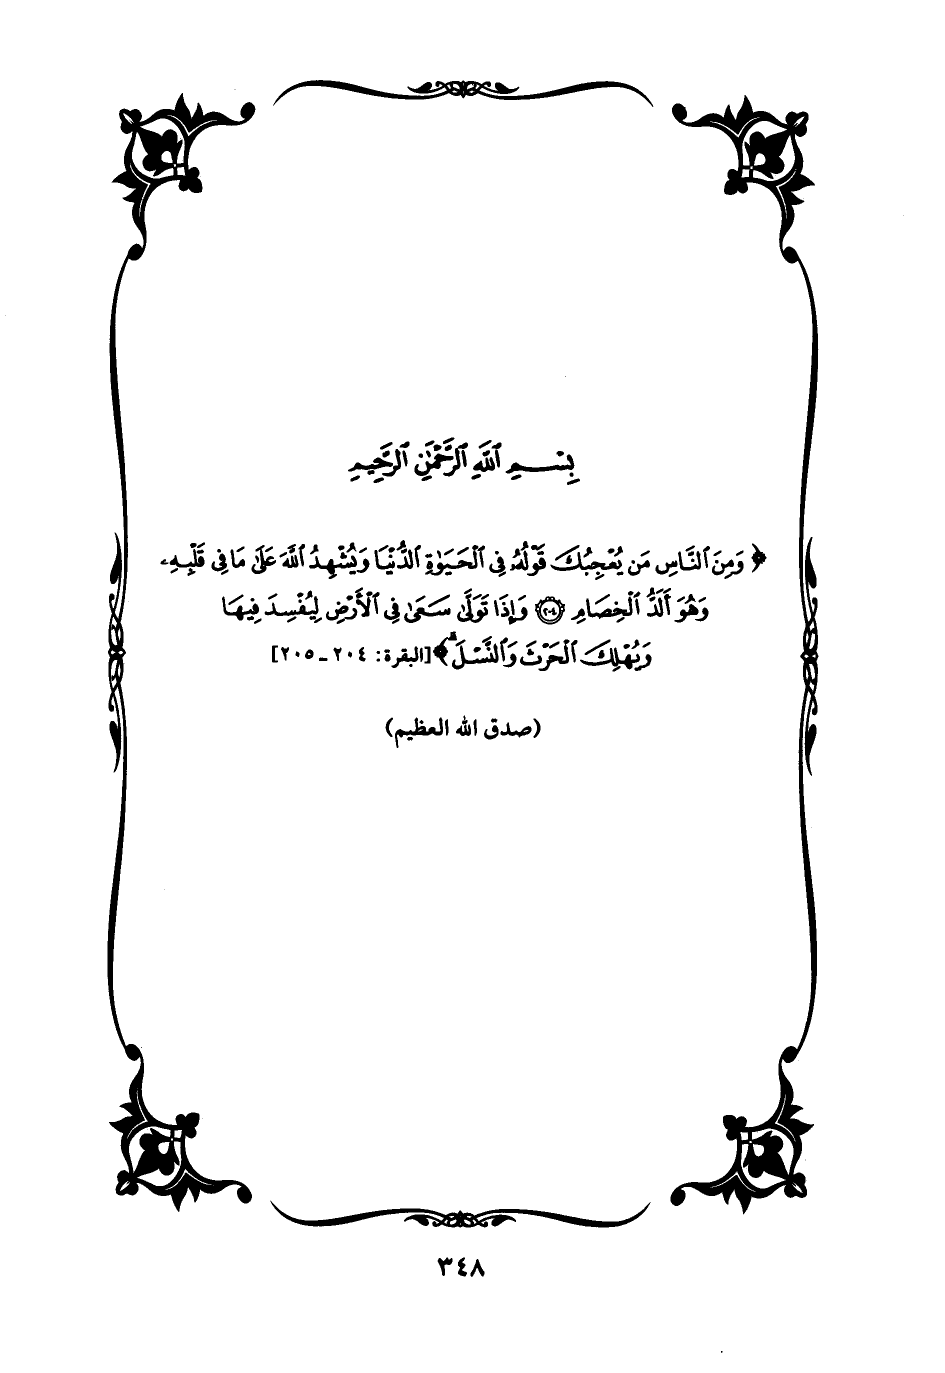 بِسْمِ ٱللَّهِ ٱلرَّحْمَٰنِ ٱلرَّحِيمِ
﴿ وَمِنَ ٱلنَّاسِ مَن يُعْجِبُكَ قَوْلُهُۥ فِى ٱلْحَيَوٰةِ ٱلدُّنْيَا وَيُشْهِدُ ٱللَّهَ عَلَىٰ مَا فِى قَلْبِهِۦ
وَهُوَ أَلَدُّ ٱلْخِصَامِ ۝٢٠٤ وَإِذَا تَوَلَّىٰ سَعَىٰ فِى ٱلْأَرْضِ لِيُفْسِدَ فِيهَا
وَيُهْلِكَ ٱلْحَرْثَ وَٱلنَّسْلَ ۗ﴾ [البقرة: ٢٠٤ ـ ٢٠٥]
(صدق الله العظيم)
٣٤٨